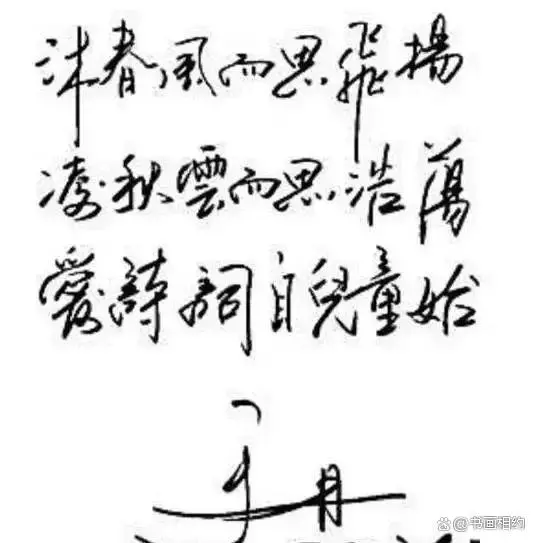 沐春風而思飛揚
凌秋雲而思浩蕩
愛詩詞自兒童始
于丹
書画相约